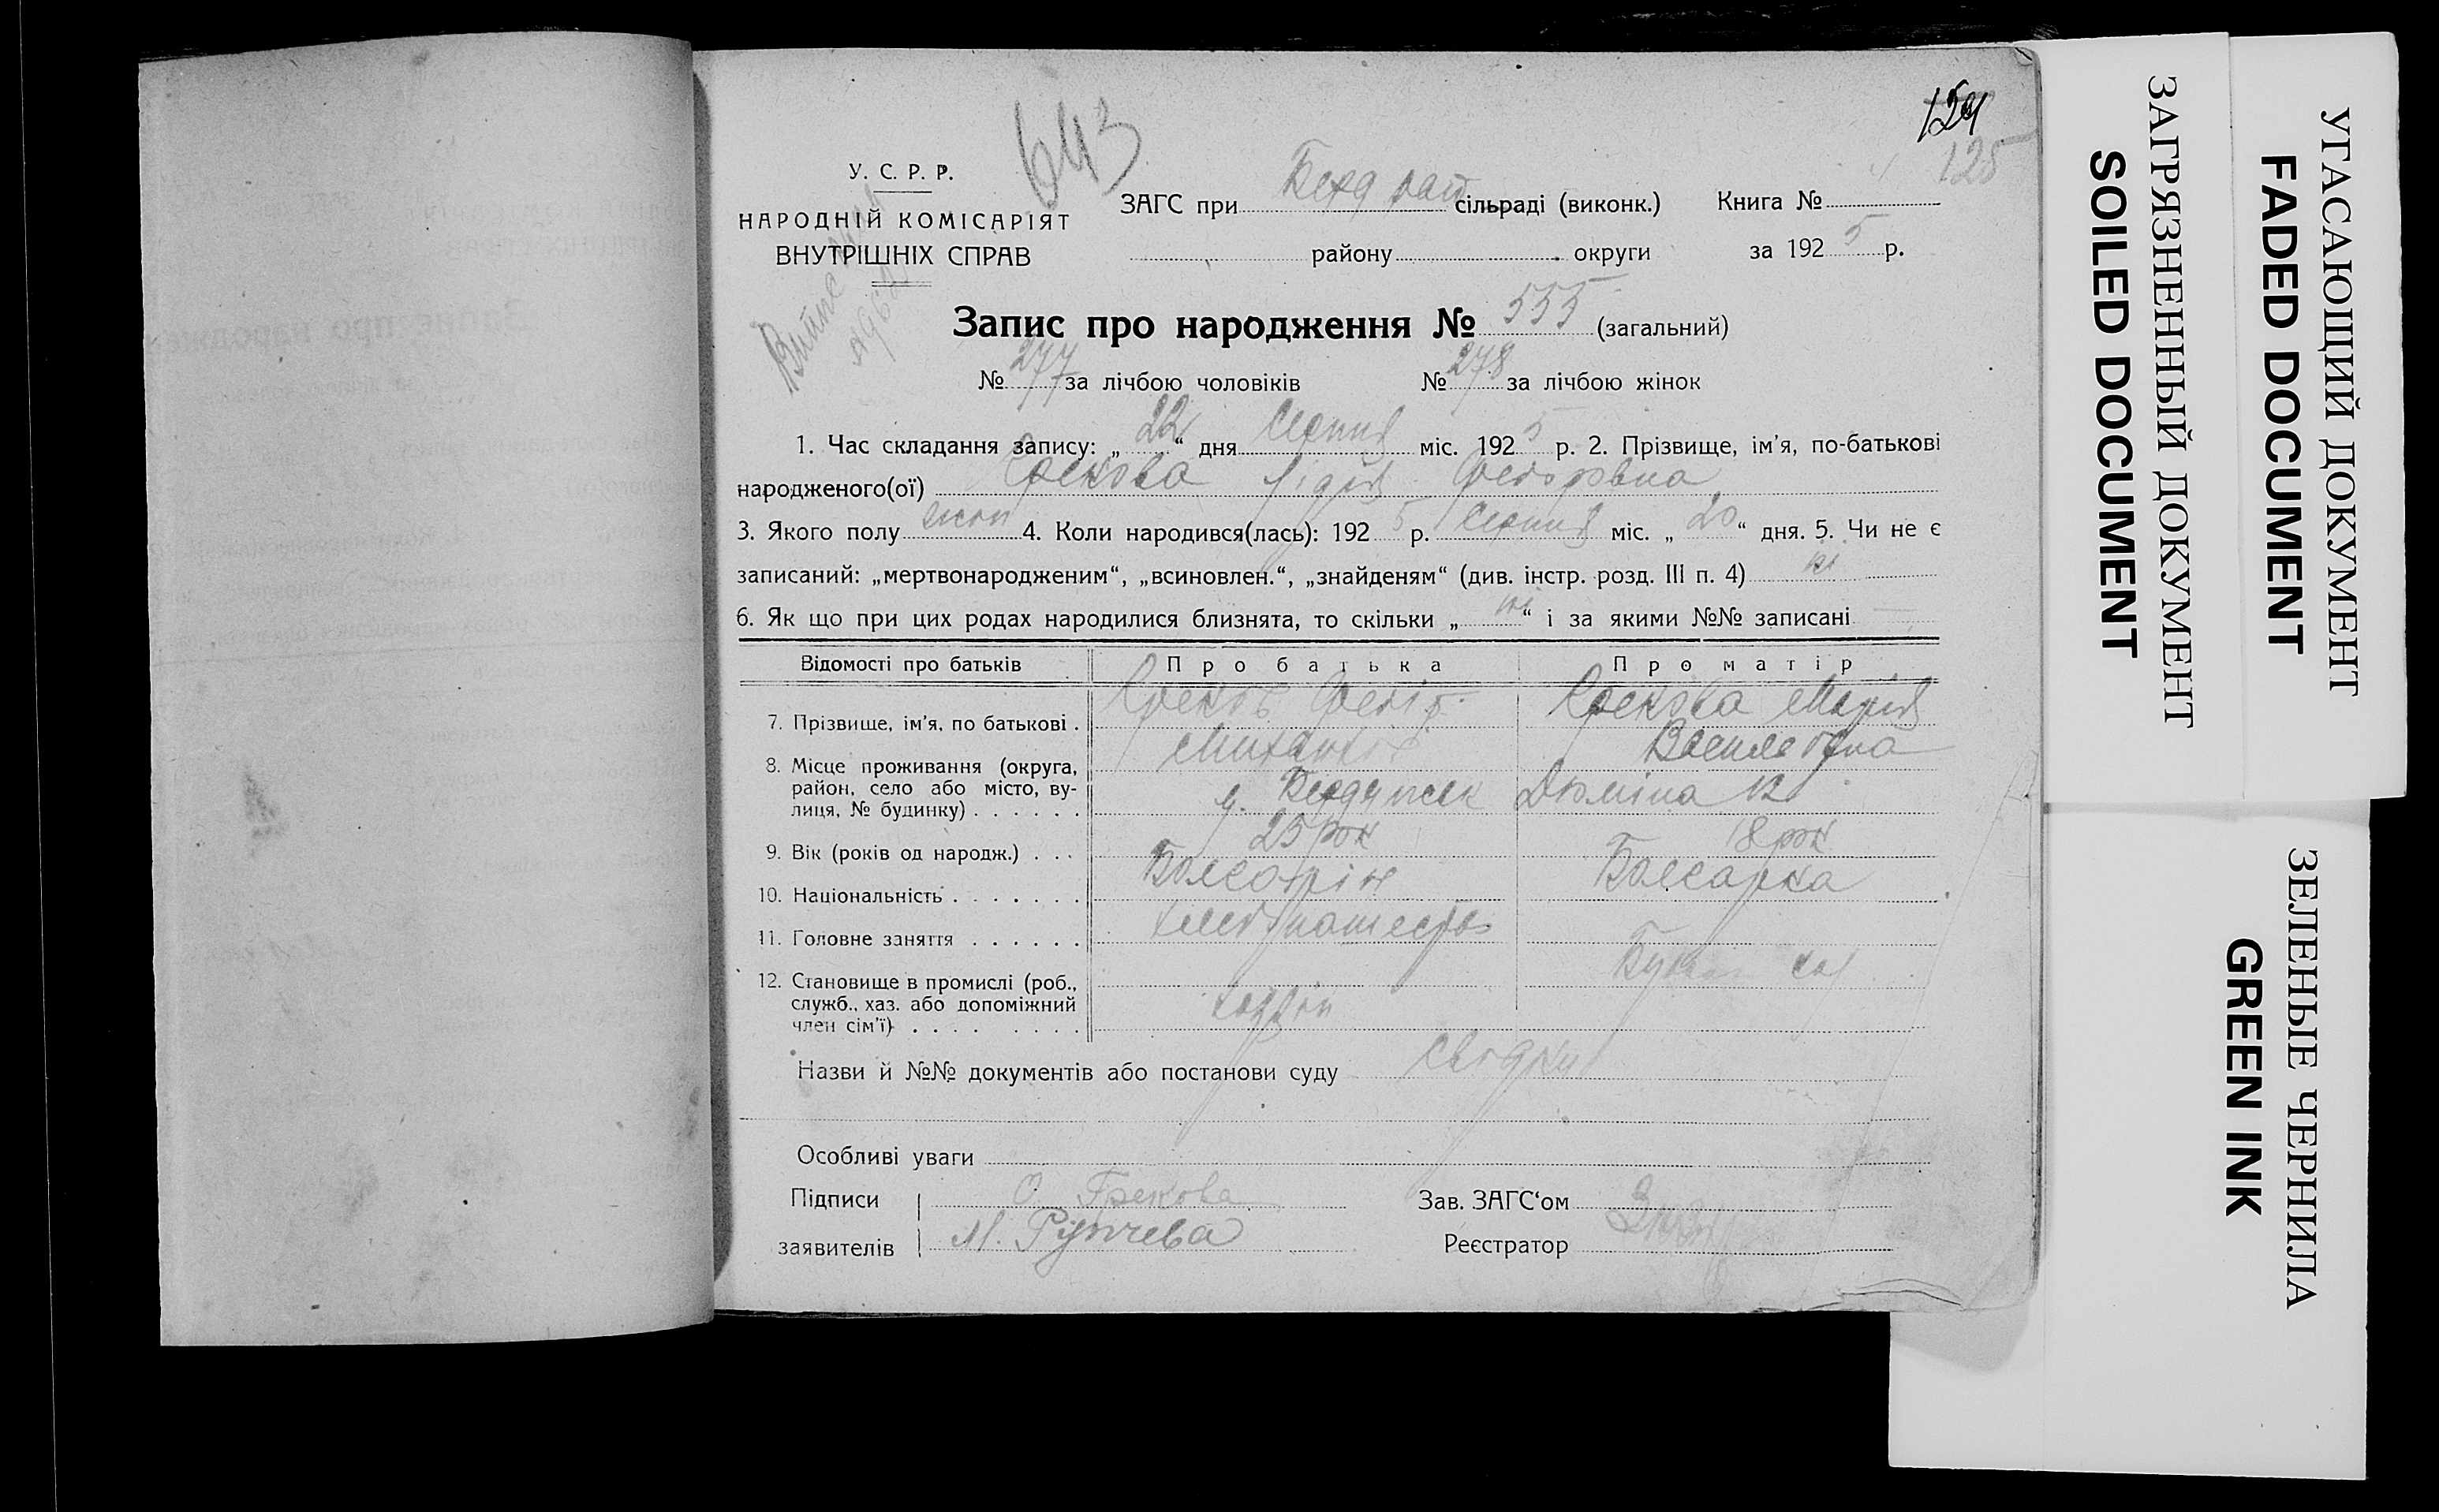 643
124
125
У. С. Р. Р.
НАРОДНІЙ КОМІСАРІЯТ
ВНУТРІШНІХ СПРАВ
ЗАГС при Берд рай сільраді (виконк.) Книга №
району округи за 1925 р.
Запис про народження № 555 (загальний)
№ 277 за лічбою чоловіків № 278 за лічбою жінок
1. Час складання запису: „22“ дня Серпня міс. 1925 р. 2. Прізвище, ім'я, по-батькові
народженого(ої) Грекова Лідія Федоровна
3. Якого полу жін 4. Коли народився(лась): 1925 р. Серпня міс. „20“ дня. 5. Чи не є
записаний: „мертвонародженим“, „всиновлен.“, „знайденям“ (див. інстр. розд. III п. 4) ні
6. Як що при цих родах народилися близнята, то скільки „ні“ і за якими №№ записані
Відомості про батьків Про батька Про матір
7. Прізвище, ім'я, по батькові . Греков Федір Грекова Марія
Василевна
8. Місце проживання (округа,
район, село або місто, ву-
лиця, № будинку) . . . . . . м. Бердянськ
9. Вік (років од народж.) . . . 25 рок 18 рок
10. Національність . . . . . . . Болгарін Болгарка
11. Головне заняття . . . . . . хлібопашество
12. Становище в промислі (роб.,
служб., хаз. або допоміжний
член сім'ї) . . . . . . . . хазяїн
Назви й №№ документів або постанови суду свідки
Особливі уваги
Підписи О. Грекова Зав. ЗАГС'ом
заявителів М. Рупчева Реєстратор
УГАСАЮЩИЙ ДОКУМЕНТ
FADED DOCUMENT
ЗАГРЯЗНЕННЫЙ ДОКУМЕНТ
SOILED DOCUMENT
ЗЕЛЕНЫЕ ЧЕРНИЛА
GREEN INK